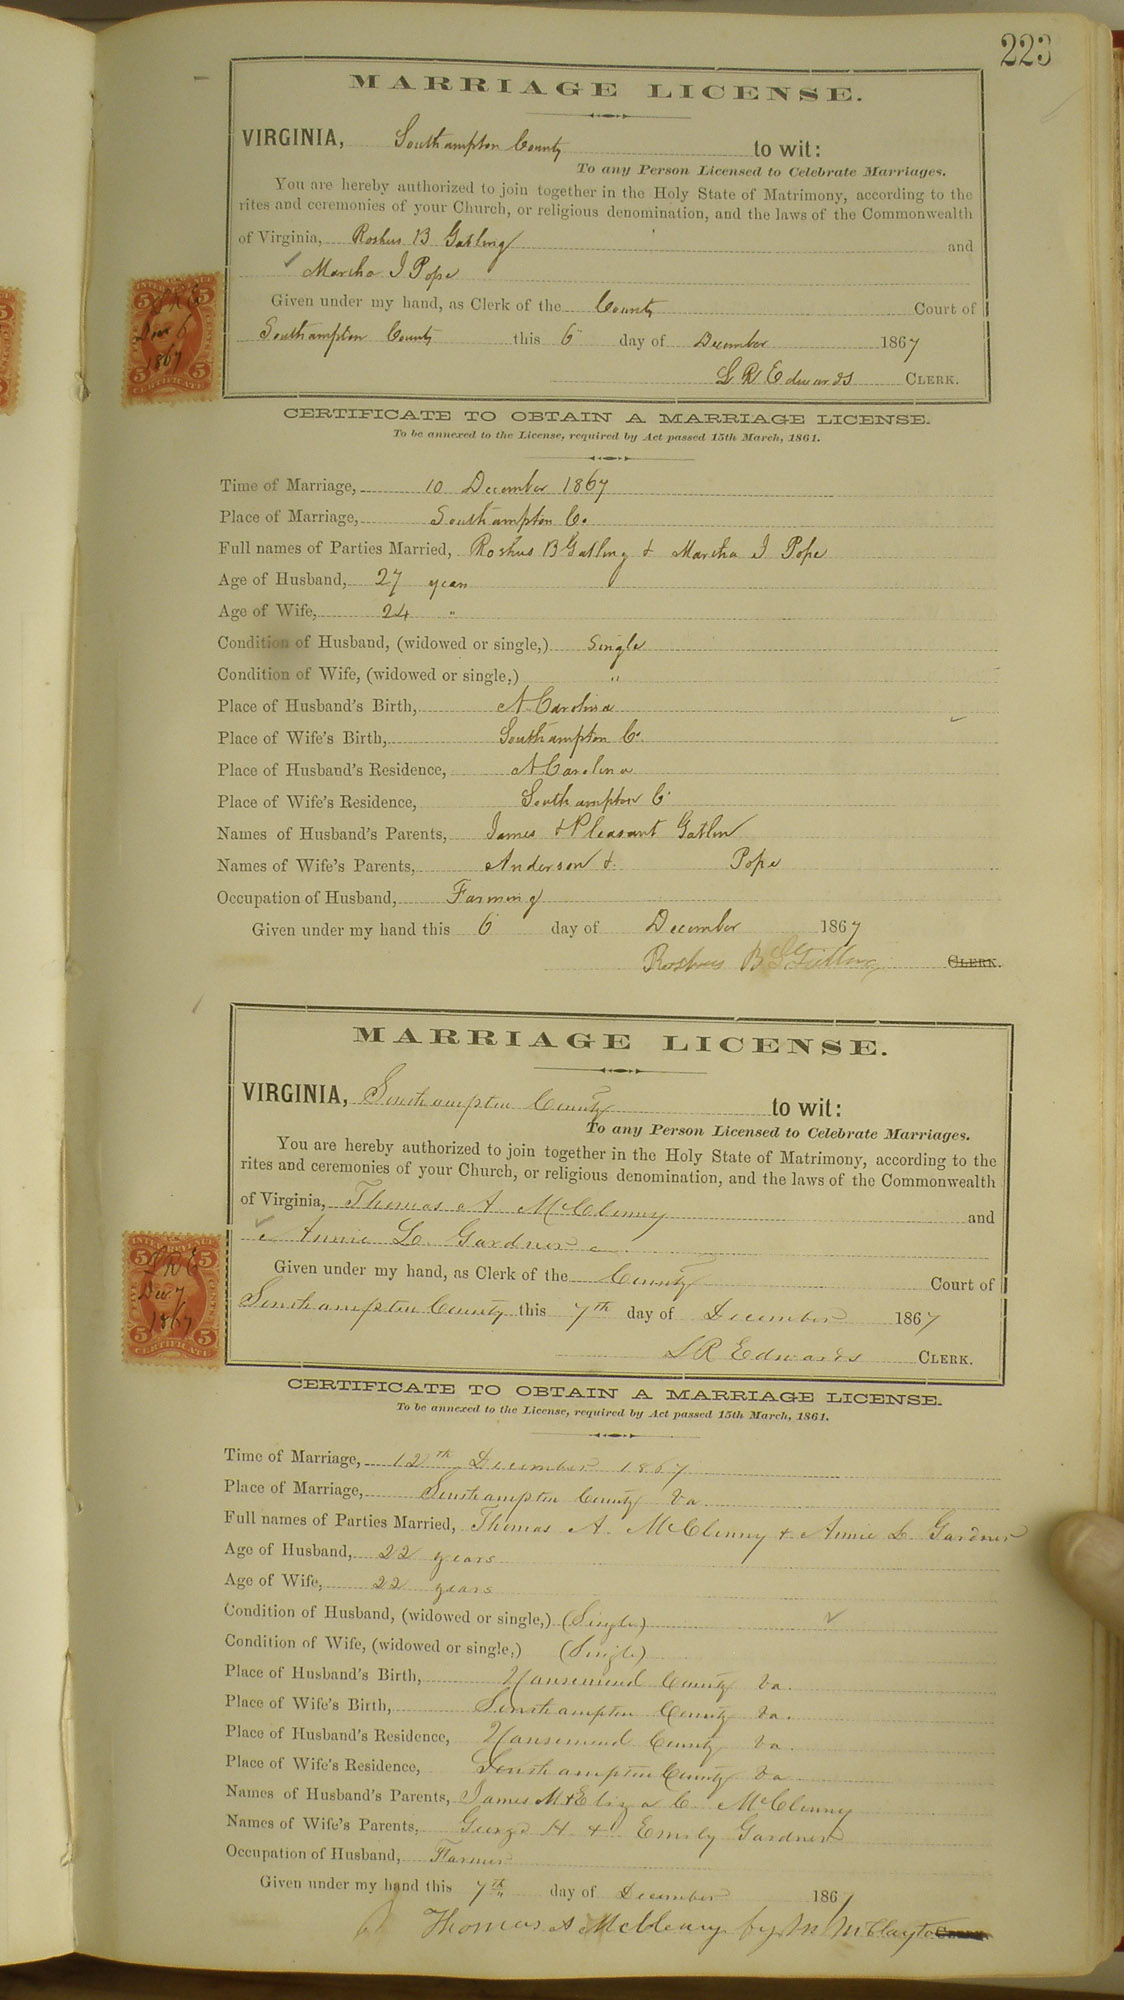 223
MARRIAGE LICENSE.
VIRGINIA, Southampton County to wit:
To any Person Licensed to Celebrate Marriages.
You are hereby authorized to join together in the Holy State of Matrimony, according to the
rites and ceremonies of your Church, or religious denomination, and the laws of the Commonwealth
of Virginia, Roshus B Gatling and
Martha J Pope
Given under my hand, as Clerk of the County Court of
Southampton County this 6 day of December 1867
L R Edwards CLERK.
L R E
Dec 6
1867
CERTIFICATE
CERTIFICATE TO OBTAIN A MARRIAGE LICENSE.
To be annexed to the License, required by Act passed 15th March, 1861.
Time of Marriage, 10 December 1867
Place of Marriage, Southampton Co.
Full names of Parties Married, Roshus B Gatling & Martha J Pope
Age of Husband, 27 years
Age of Wife, 24 "
Condition of Husband, (widowed or single,) Single
Condition of Wife, (widowed or single,) "
Place of Husband's Birth, N Carolina
Place of Wife's Birth, Southampton Co.
Place of Husband's Residence, N Carolina
Place of Wife's Residence, Southampton Co
Names of Husband's Parents, James & Pleasant Gatlin
Names of Wife's Parents, Anderson & Pope
Occupation of Husband, Farming
Given under my hand this 6 day of December 1867
Roshus B Gatling CLERK.
MARRIAGE LICENSE.
VIRGINIA, Southampton County to wit:
To any Person Licensed to Celebrate Marriages.
You are hereby authorized to join together in the Holy State of Matrimony, according to the
rites and ceremonies of your Church, or religious denomination, and the laws of the Commonwealth
of Virginia, Thomas A McClenny and
Annie L. Gardner
Given under my hand, as Clerk of the County Court of
Southampton County this 7th day of December 1867
L R Edwards CLERK.
L R E
Dec 7
1867
CERTIFICATE
CERTIFICATE TO OBTAIN A MARRIAGE LICENSE.
To be annexed to the License, required by Act passed 15th March, 1861.
Time of Marriage, 12th December 1867
Place of Marriage, Southampton County Va
Full names of Parties Married, Thomas A. McClenny & Annie L Gardner
Age of Husband, 22 years
Age of Wife, 22 years
Condition of Husband, (widowed or single,) (Single)
Condition of Wife, (widowed or single,) (Single)
Place of Husband's Birth, Nansemond County Va.
Place of Wife's Birth, Southampton County Va.
Place of Husband's Residence, Nansemond County Va.
Place of Wife's Residence, Southampton County Va
Names of Husband's Parents, James M & Eliza C. McClenny
Names of Wife's Parents, George H & Emily Gardner
Occupation of Husband, Farmer
Given under my hand this 7th day of December 1867
Thomas A McCleany by M McClayto CLERK.